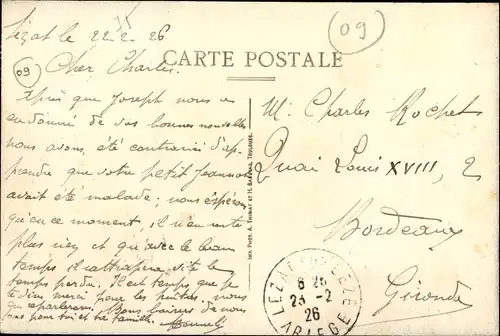 Lézat le 22-2-26
09
09
CARTE POSTALE
Cher Charles.
Après que Joseph nous a
eu donné de vos bonnes nouvelles
nous avons été contrariés d'ap-
prendre que votre petit Jeannot
avait été malade; nous espérons
qu'en ce moment, il n'en reste
plus rien et qu'avec le beau
temps il rattrapera vite le
temps perdu. Il est temps que je
te dise merci pour les huîtres nous
en reparlerons. Nous baisers de nous
tous pour toi et ta famille.
Imp. Photo A. Thiriat et H. Basuyau, Toulouse.
M. Charles Rochet
Quai Louis XVIII, 2
Bordeaux
Gironde
LEZAT SUR LEZE
6 25
23-2
26
ARIEGE